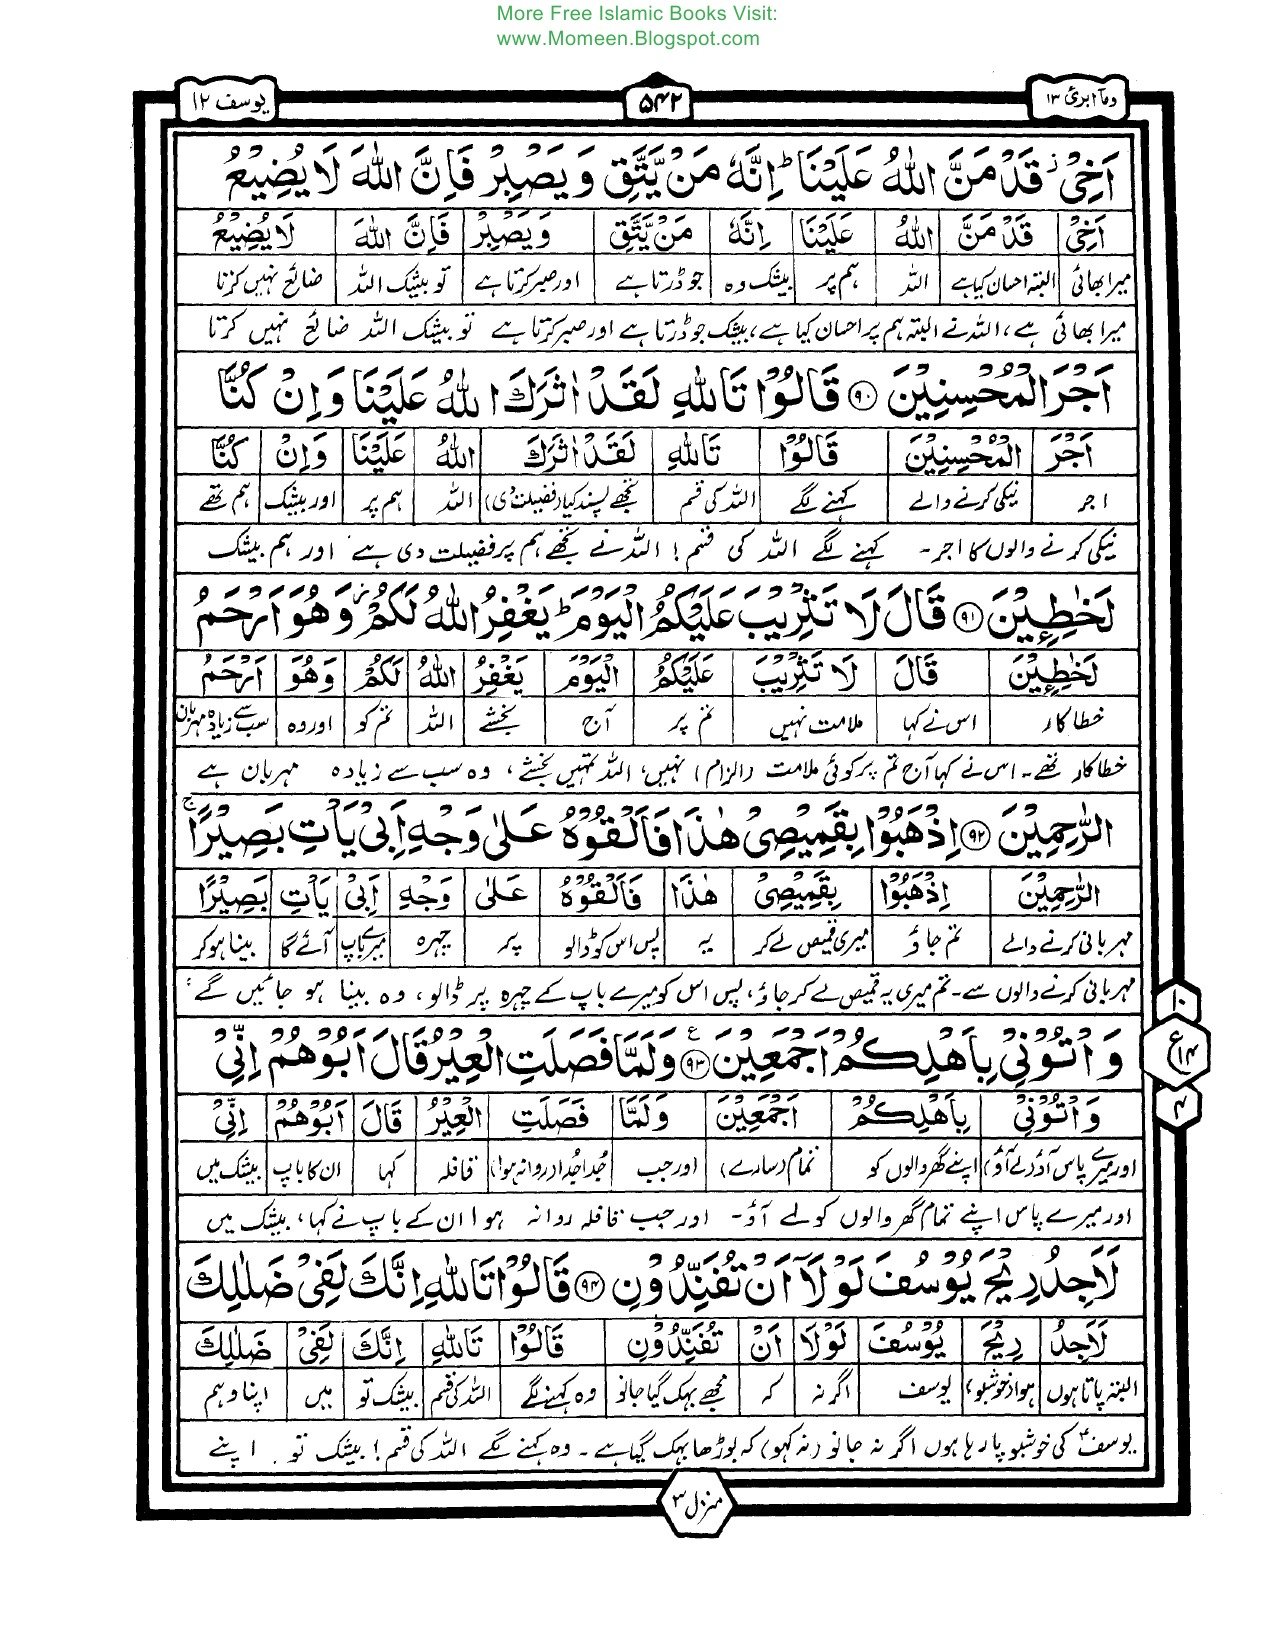 More Free Islamic Books Visit:
www.Momeen.Blogspot.com
ومآ ابرئ ۱۳
۵۴۲
یوسف ۱۲
اَخِیْ ز قَدْ مَنَّ اللّٰهُ عَلَیْنَا ؕ اِنَّهٗ مَنْ یَّتَّقِ وَ یَصْبِرْ فَاِنَّ اللّٰهَ لَا یُضِیْعُ
اَخِیْ قَدْ مَنَّ اللّٰهُ عَلَیْنَا اِنَّهٗ مَنْ یَّتَّقِ وَ یَصْبِرْ فَاِنَّ اللّٰهَ لَا یُضِیْعُ
میرا بھائی البتہ احسان کیا ہے اللہ ہم پر بیشک وہ جو ڈرتا ہے اور صبر کرتا ہے تو بیشک اللہ ضائع نہیں کرتا
میرا بھائی ہے، اللہ نے البتہ ہم پر احسان کیا ہے، بیشک جو ڈرتا ہے اور صبر کرتا ہے تو بیشک اللہ ضائع نہیں کرتا
اَجْرَ الْمُحْسِنِیْنَ ﴿۹۰﴾ قَالُوْا تَاللّٰهِ لَقَدْ اٰثَرَكَ اللّٰهُ عَلَیْنَا وَ اِنْ كُنَّا
اَجْرَ الْمُحْسِنِیْنَ قَالُوْا تَاللّٰهِ لَقَدْ اٰثَرَكَ اللّٰهُ عَلَیْنَا وَ اِنْ كُنَّا
اجر نیکی کرنے والے کہنے لگے اللہ کی قسم تجھے پسند کیا (فضیلت دی) اللہ ہم پر اور بیشک ہم تھے
نیکی کرنے والوں کا اجر۔ کہنے لگے اللہ کی قسم! اللہ نے تجھے ہم پر فضیلت دی ہے اور ہم بیشک
لَخٰطِـِٕیْنَ ﴿۹۱﴾ قَالَ لَا تَثْرِیْبَ عَلَیْكُمُ الْیَوْمَ ؕ یَغْفِرُ اللّٰهُ لَكُمْ ز وَ هُوَ اَرْحَمُ
لَخٰطِـِٕیْنَ قَالَ لَا تَثْرِیْبَ عَلَیْكُمُ الْیَوْمَ یَغْفِرُ اللّٰهُ لَكُمْ وَ هُوَ اَرْحَمُ
خطا کار اس نے کہا ملامت نہیں تم پر آج بخشے اللہ تم کو اور وہ سب سے زیادہ مہربان
خطا کار تھے۔ اس نے کہا آج تم پر کوئی ملامت (الزام) نہیں، اللہ تمہیں بخشے، وہ سب سے زیادہ مہربان ہے
الرّٰحِمِیْنَ ﴿۹۲﴾ اِذْهَبُوْا بِقَمِیْصِیْ هٰذَا فَاَلْقُوْهُ عَلٰى وَجْهِ اَبِیْ یَاْتِ بَصِیْرًا ۚ
الرّٰحِمِیْنَ اِذْهَبُوْا بِقَمِیْصِیْ هٰذَا فَاَلْقُوْهُ عَلٰى وَجْهِ اَبِیْ یَاْتِ بَصِیْرًا
مہربانی کرنے والے تم جاؤ میری قمیص لے کر یہ پس اس کو ڈالو پر چہرہ میرے باپ آئے گا بینا ہو کر
مہربانی کرنے والوں سے۔ تم میری یہ قمیص لے کر جاؤ، پس اس کو میرے باپ کے چہرہ پر ڈالو، وہ بینا ہو جائیں گے؛
وَ اْتُوْنِیْ بِاَهْلِكُمْ اَجْمَعِیْنَ ﴿۹۳﴾ ع وَ لَمَّا فَصَلَتِ الْعِیْرُ قَالَ اَبُوْهُمْ اِنِّیْ
۱۰
ع ۱۴
۴
وَ اْتُوْنِیْ بِاَهْلِكُمْ اَجْمَعِیْنَ وَ لَمَّا فَصَلَتِ الْعِیْرُ قَالَ اَبُوْهُمْ اِنِّیْ
اور میرے پاس آؤ (لے آؤ) اپنے گھر والوں کو تمام (سارے) اور جب جدا جدا (روانہ ہوا) قافلہ کہا ان کا باپ بیشک میں
اور میرے پاس اپنے تمام گھر والوں کو لے آؤ۔ اور جب قافلہ روانہ ہوا ان کے باپ نے کہا، بیشک میں
لَاَجِدُ رِیْحَ یُوْسُفَ لَوْ لَاۤ اَنْ تُفَنِّدُوْنِ ﴿۹۴﴾ قَالُوْا تَاللّٰهِ اِنَّكَ لَفِیْ ضَلٰلِكَ
لَاَجِدُ رِیْحَ یُوْسُفَ لَوْ لَا اَنْ تُفَنِّدُوْنِ قَالُوْا تَاللّٰهِ اِنَّكَ لَفِیْ ضَلٰلِكَ
البتہ پاتا ہوں ہوا (خوشبو) یوسف اگر نہ کہ مجھے بہک گیا جانو وہ کہنے لگے اللہ کی قسم بیشک تو میں اپنا وہم
یوسفؑ کی خوشبو پا رہا ہوں اگر نہ جانو (نہ کہو) کہ بوڑھا بہک گیا ہے۔ وہ کہنے لگے اللہ کی قسم! بیشک تو اپنے
منزل ۳